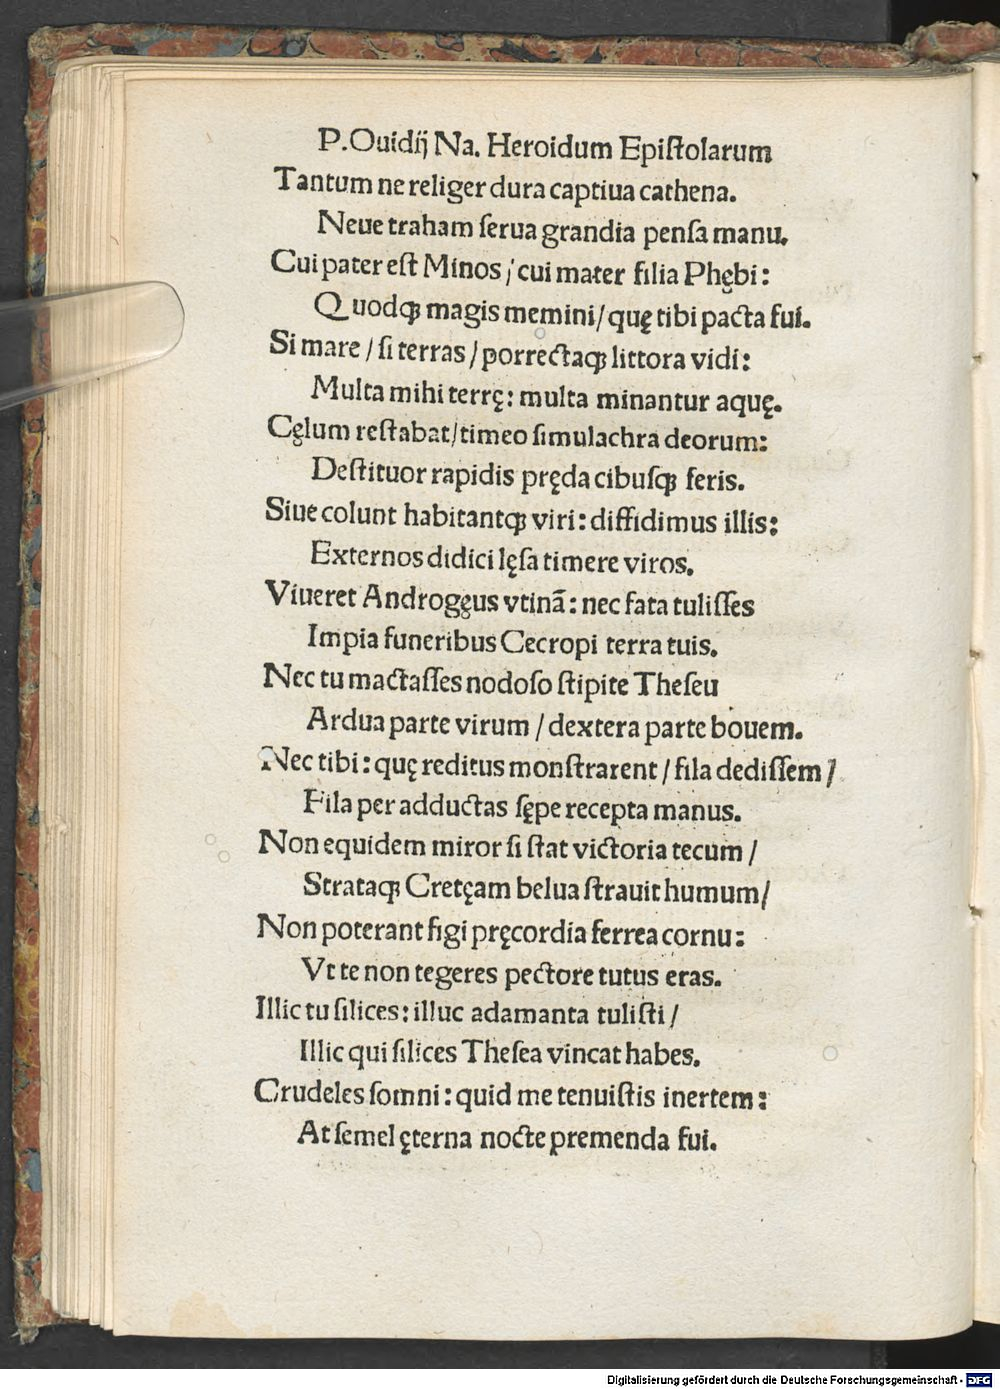 P.Ouidij Na. Heroidum Epiſtolarum
Tantum ne religer dura captiua cathena.
Neue traham ſerua grandia penſa manu.
Cui pater eſt Minos / cui mater filia Phębi:
Quodqꝫ magis memini / quę tibi pacta fui.
Si mare / ſi terras / porrectaqꝫ littora vidi:
Multa mihi terrę: multa minantur aquę.
Cęlum reſtabat / timeo ſimulachra deorum:
Deſtituor rapidis pręda cibuſqꝫ feris.
Siue colunt habitantqꝫ viri: diffidimus illis:
Externos didici lęſa timere viros.
Viueret Androgęus vtinã: nec fata tuliſſes
Impia funeribus Cecropi terra tuis.
Nec tu mactaſſes nodoſo ſtipite Theſeu
Ardua parte virum / dextera parte bouem.
Nec tibi: quę reditus monſtrarent / fila dediſſem /
Fila per adductas ſępe recepta manus.
Non equidem miror ſi ſtat victoria tecum /
Strataqꝫ Cretęam belua ſtrauit humum /
Non poterant figi pręcordia ferrea cornu:
Vt te non tegeres pectore tutus eras.
Illic tu ſilices: illuc adamanta tuliſti /
Illic qui ſilices Theſea vincat habes.
Crudeles ſomni: quid me tenuiſtis inertem:
At ſemel ęterna nocte premenda fui.
Digitalisierung gefördert durch die Deutsche Forschungsgemeinschaft - DFG